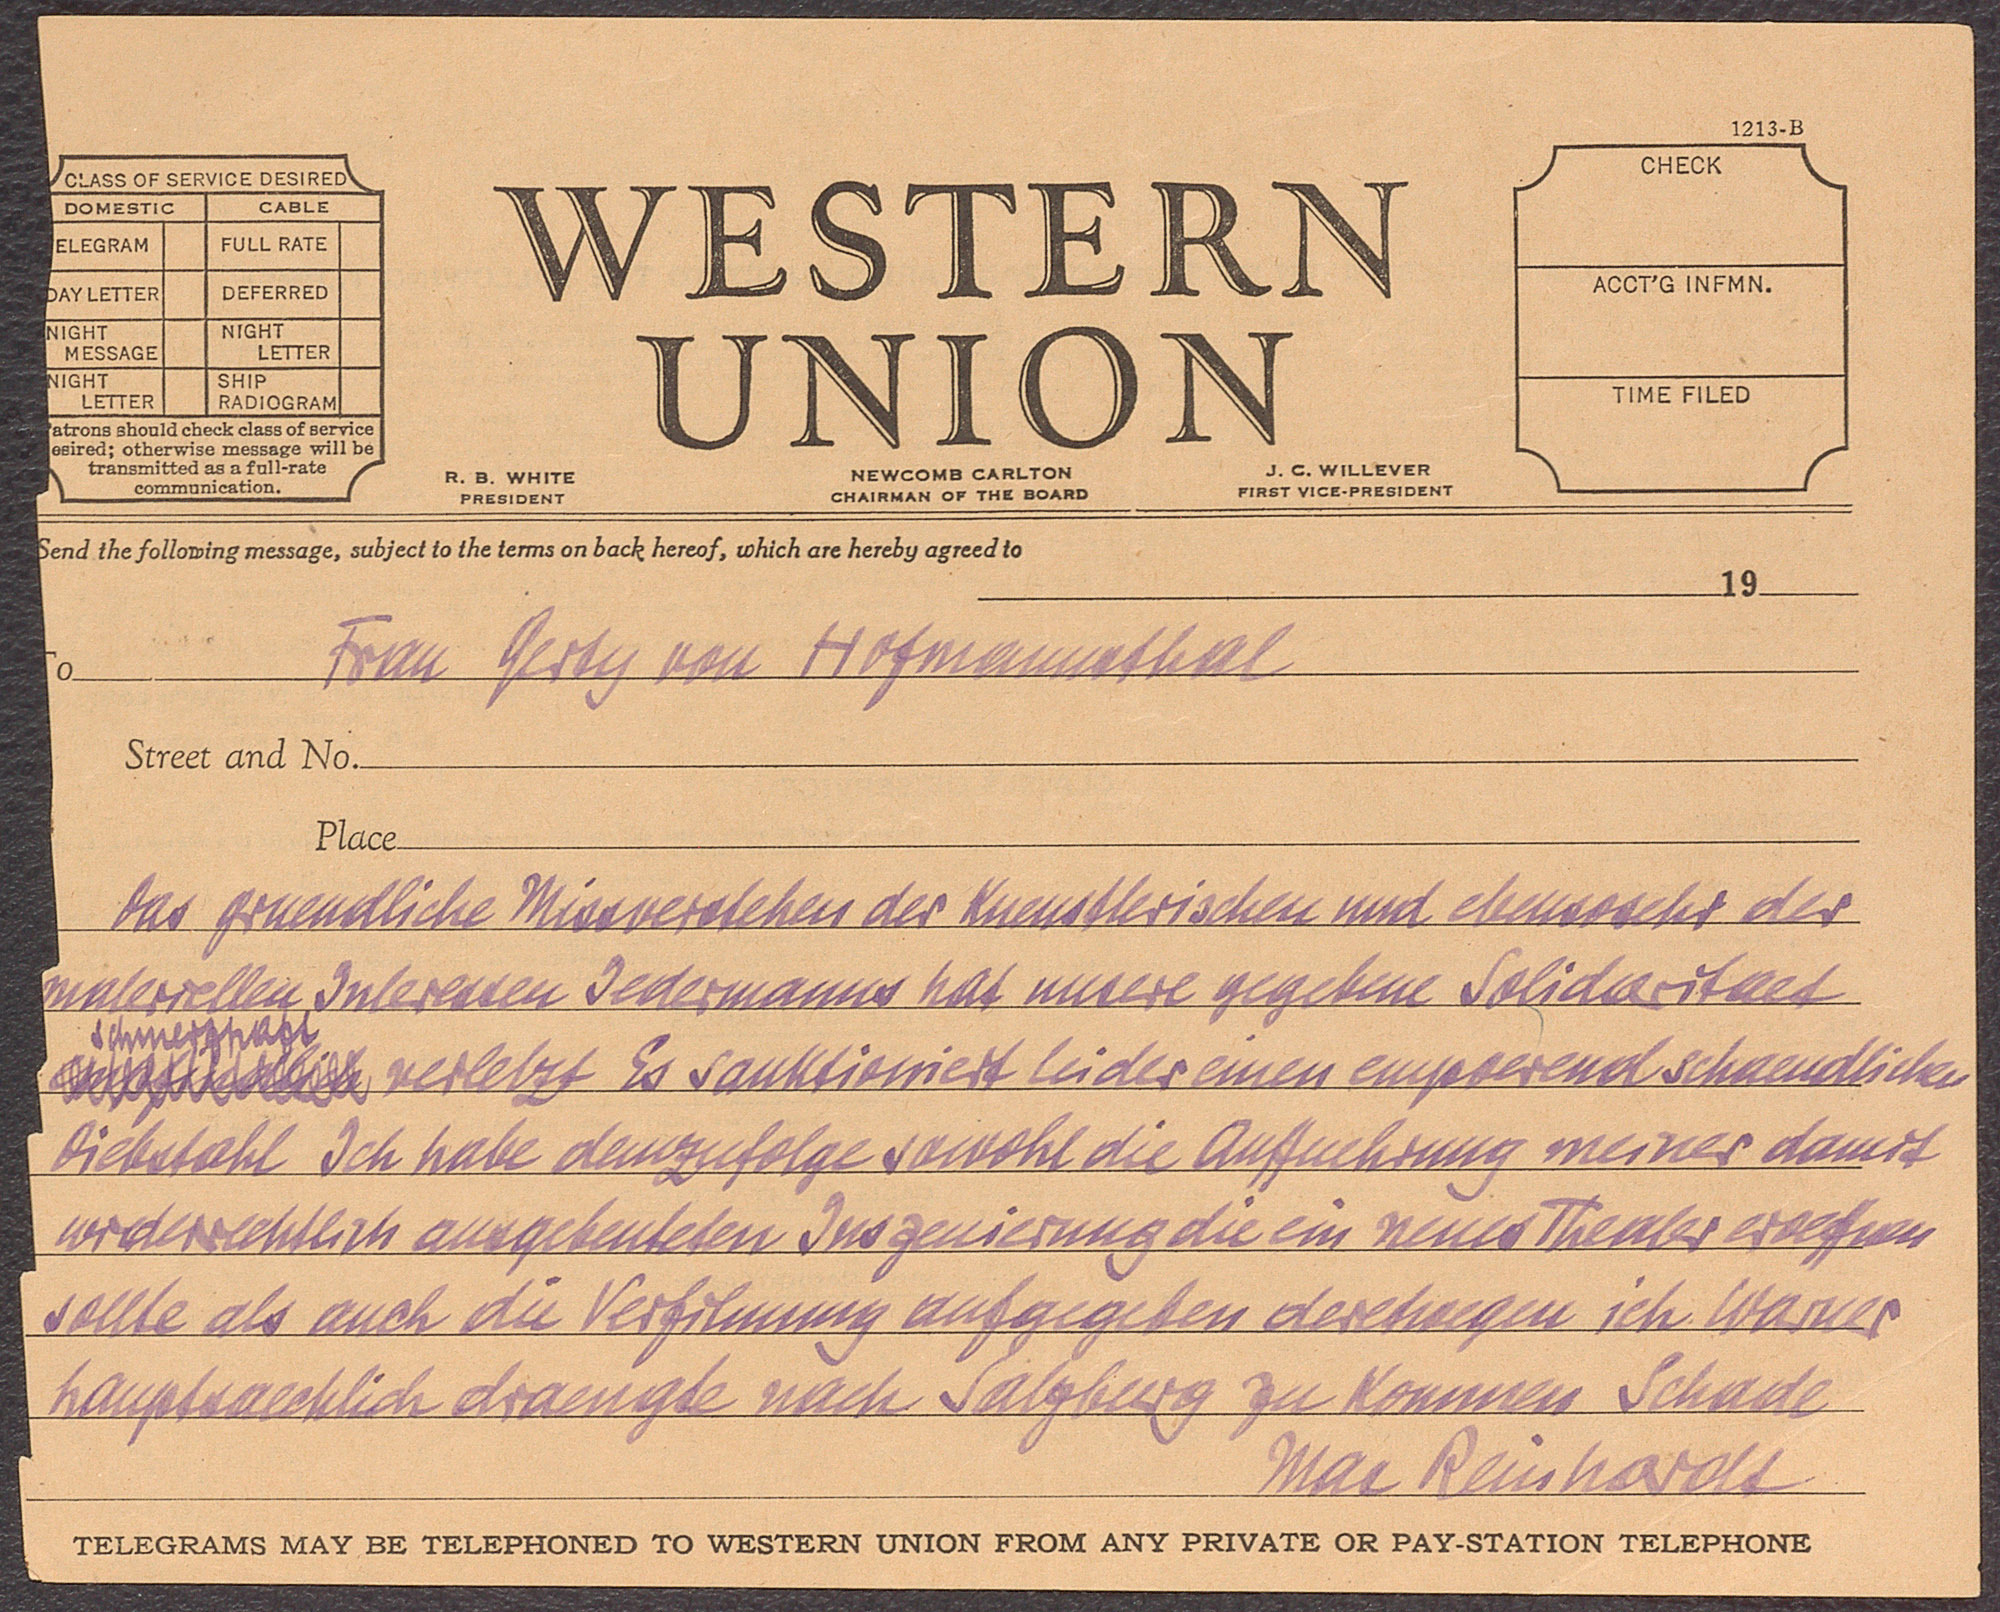 1213-B
CLASS OF SERVICE DESIRED
DOMESTIC CABLE
ELEGRAM FULL RATE
DAY LETTER DEFERRED
NIGHT MESSAGE NIGHT LETTER
NIGHT LETTER SHIP RADIOGRAM
atrons should check class of service
esired; otherwise message will be
transmitted as a full-rate
communication.
WESTERN
UNION
R. B. WHITE
PRESIDENT
NEWCOMB CARLTON
CHAIRMAN OF THE BOARD
J. C. WILLEVER
FIRST VICE-PRESIDENT
CHECK
ACCT'G INFMN.
TIME FILED
Send the following message, subject to the terms on back hereof, which are hereby agreed to
19
To Frau Gerty von Hofmannsthal
Street and No.
Place
Das gruendliche Missverstehen der kuenstlerischen und ebensosehr der
materiellen Interessen Jedermanns hat unsere gegebene Solidaritaet
schmerzhaft
verletzt Es sanktioniert leider einen empoerend schaendlichen
Diebstahl Ich habe demzufolge sowohl die Auffuehrung meiner damit
widerrechtlich ausgebeuteten Inszenierung die ein neues Theater eroeffnen
sollte als auch die Verfilmung aufgegeben derethwegen ich Warner
hauptsaechlich draengte nach Salzburg zu kommen Schade
Max Reinhardt
TELEGRAMS MAY BE TELEPHONED TO WESTERN UNION FROM ANY PRIVATE OR PAY-STATION TELEPHONE